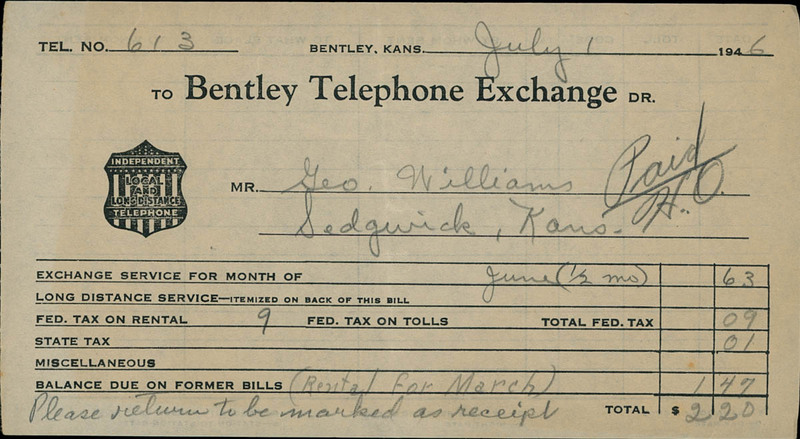 TEL. NO. 613 BENTLEY, KANS. July 1 1946
TO Bentley Telephone Exchange DR.
INDEPENDENT
LOCAL
AND
LONG DISTANCE
TELEPHONE
MR. Geo. Williams
Sedgwick, Kans.
Paid
H.O.
EXCHANGE SERVICE FOR MONTH OF June (1/2 mo) 63
LONG DISTANCE SERVICE—ITEMIZED ON BACK OF THIS BILL
FED. TAX ON RENTAL 9 FED. TAX ON TOLLS TOTAL FED. TAX 09
STATE TAX 01
MISCELLANEOUS
BALANCE DUE ON FORMER BILLS (Rental for March) 1 47
Please return to be marked as receipt TOTAL $ 2 20